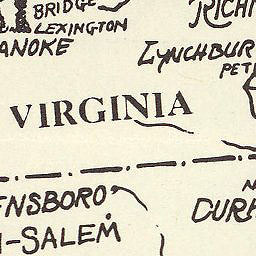 BRIDGE RICH
LEXINGTON
ANOKE LYNCHBUR
PET
VIRGINIA
ENSBORO
DURH
-SALEM